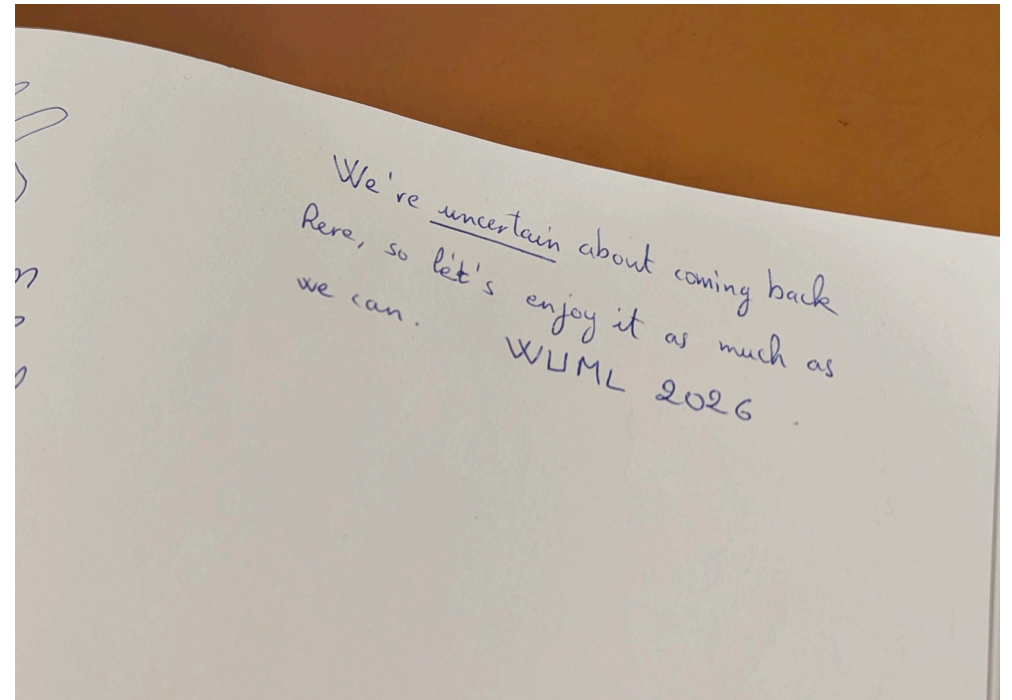 We're uncertain about coming back
here, so let's enjoy it as much as
we can.
WUML 2026.